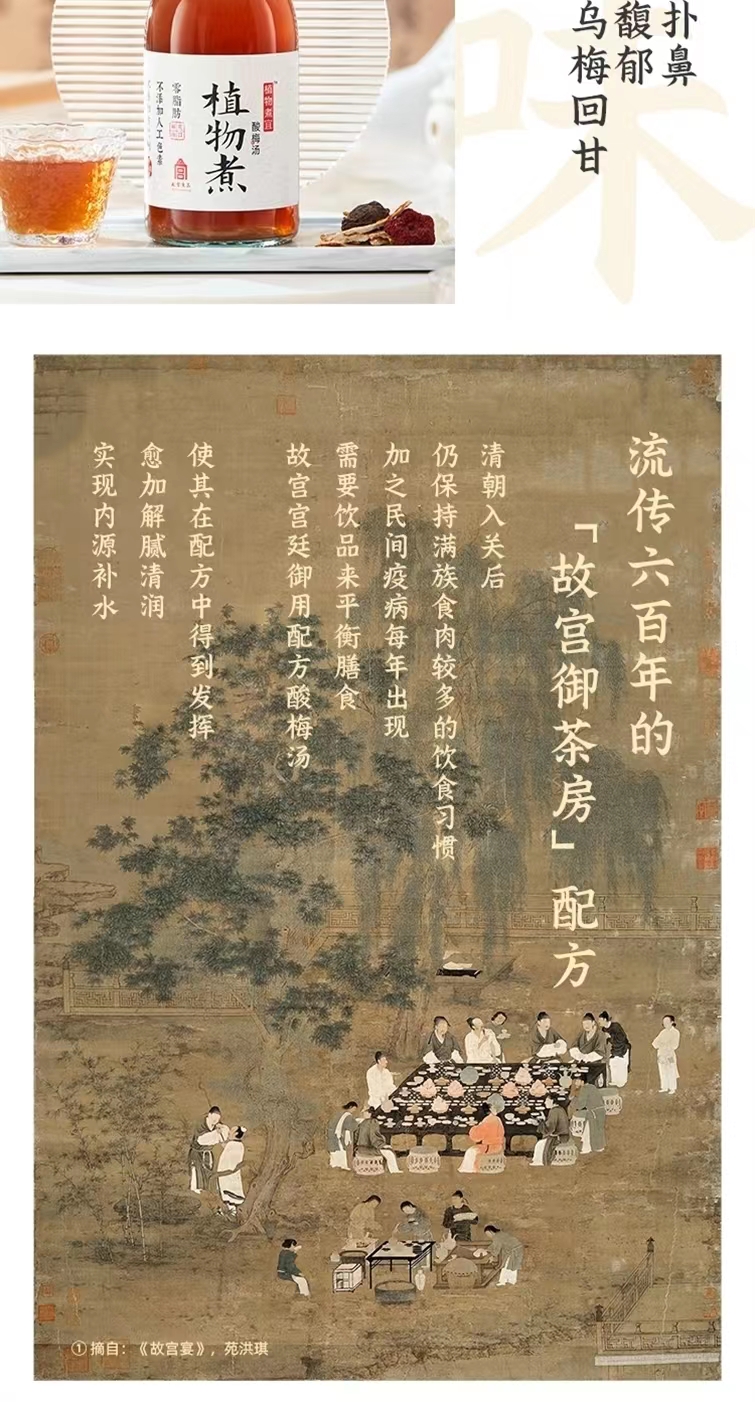 扑鼻
馥郁
乌梅回甘
味
植物煮
植物煮宜
酸梅汤
零脂肪
不添加人工色素
流传六百年的
「故宫御茶房」配方
清朝入关后
仍保持满族食肉较多的饮食习惯
加之民间疫病每年出现
需要饮品来平衡膳食
故宫宫廷御用配方酸梅汤
使其在配方中得到发挥
愈加解腻清润
实现内源补水
①摘自：《故宫宴》，苑洪琪